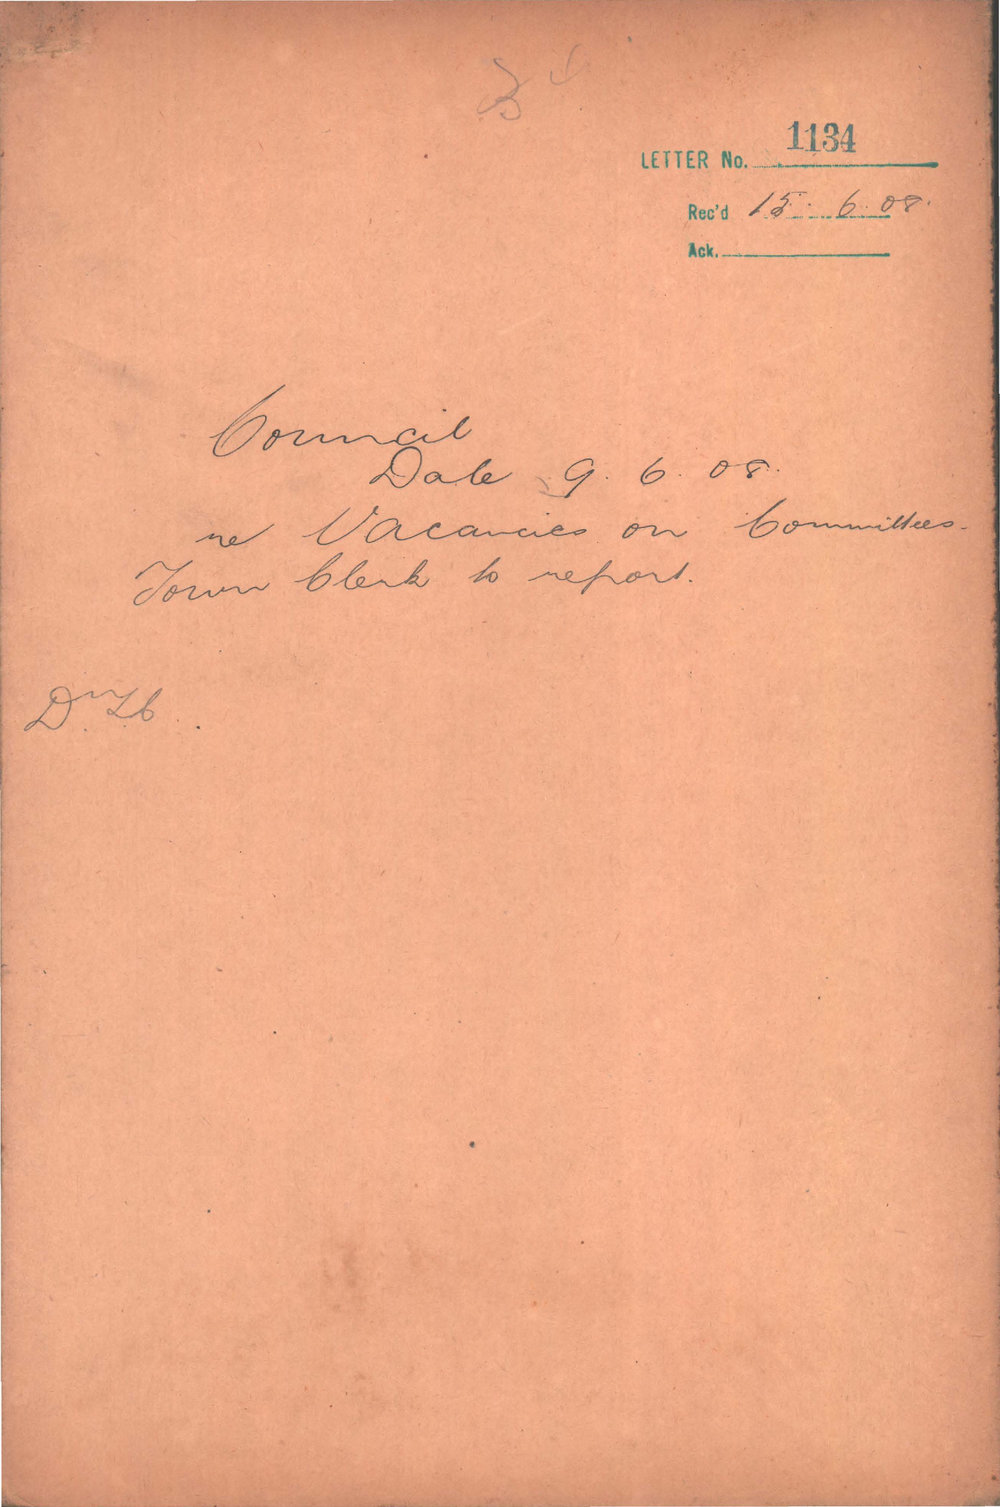 1134
LETTER No.
Rec'd 15. 6. 08.
Ack.
Council
Date 9. 6. 08.
re Vacancies on Committees.
Town Clerk to report.